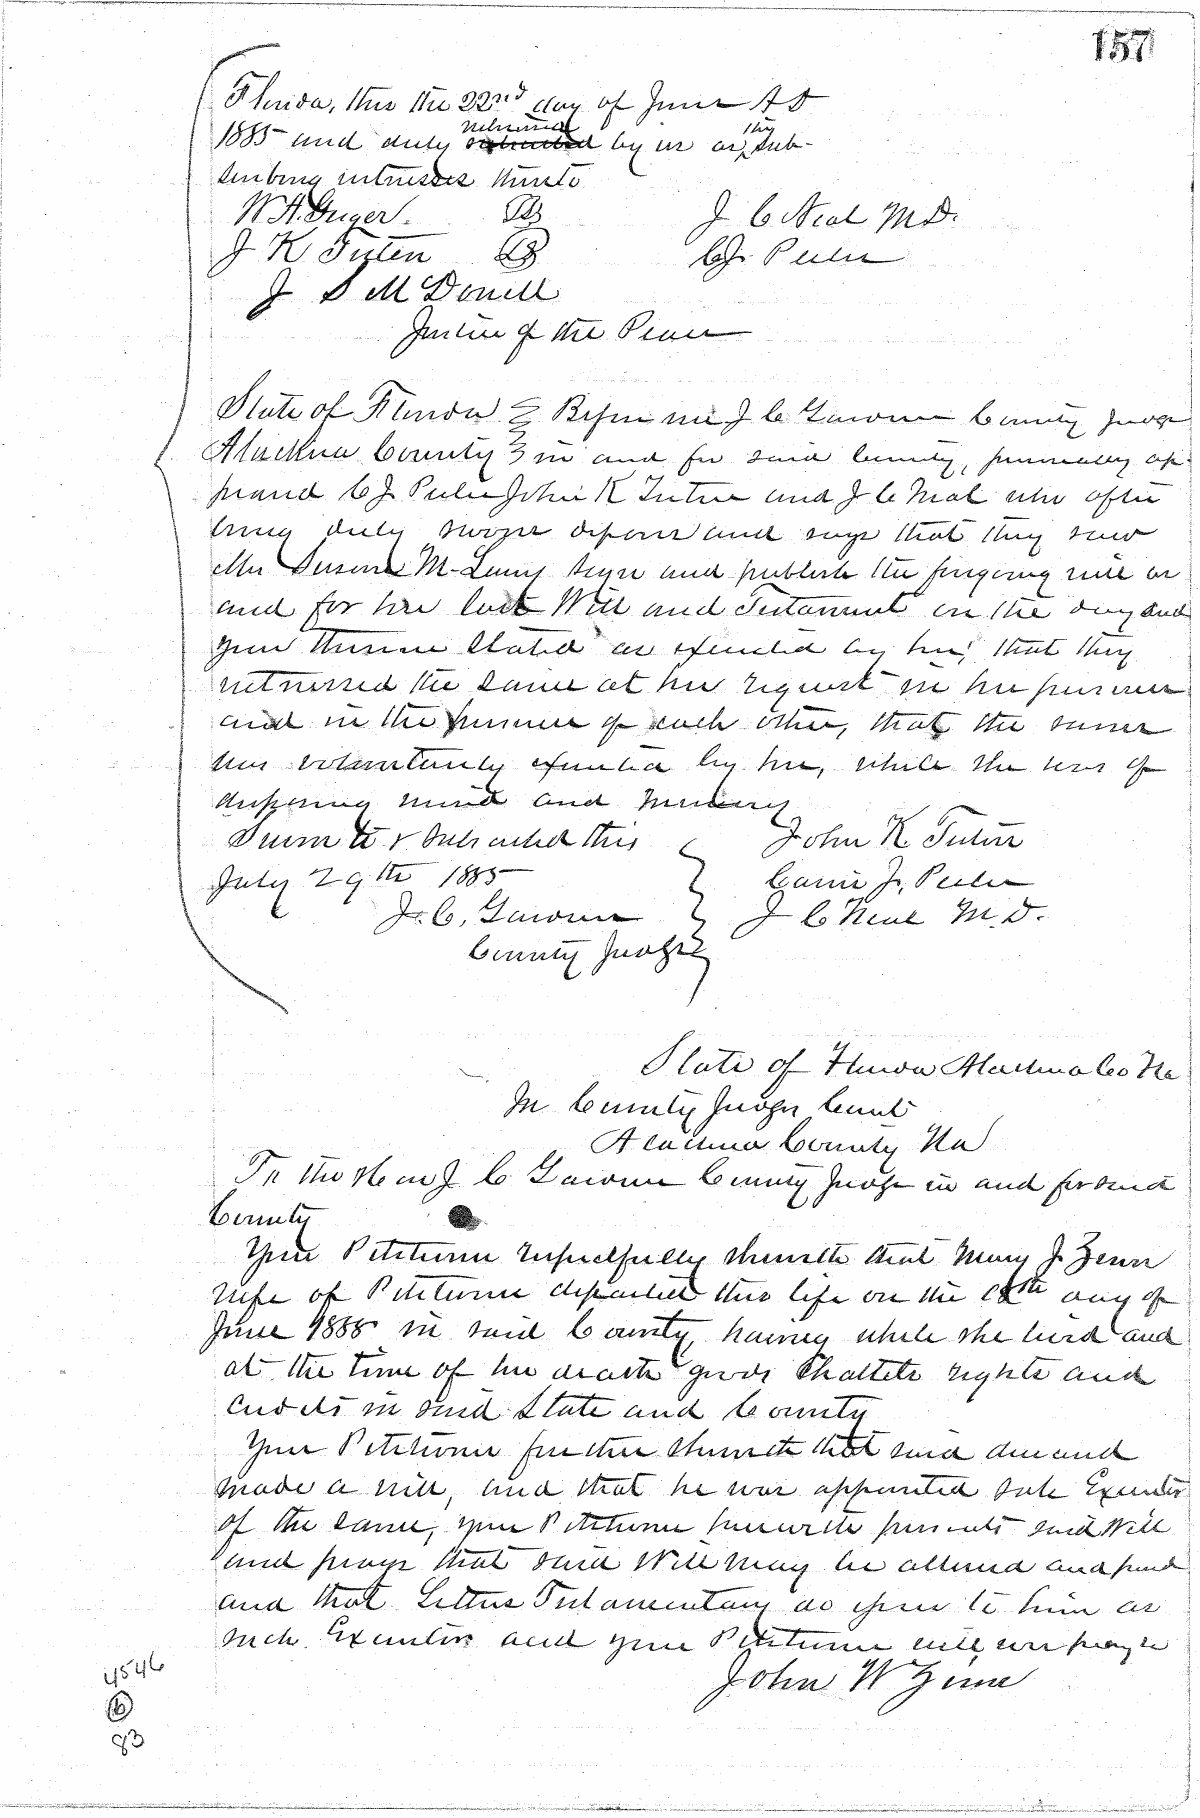 157
Florida, this the 22nd day of June A D
1885 and duly witnessed by us as the sub-
scribing witnesses thereto
W. A. Geiger.
J C Neal M.D.
J K Tuten
C J. Peeler
J S McDonell
Justice of the Peace
State of Florida } Before me J C Gardner County Judge
Alachua County } in and for said County, personally ap-
peared C J Peeler John K Tuten and J C Neal who after
being duly sworn depose and says that they saw
Mrs Susan M. sign and publish the forgoing will as
and for her last Will and Testament on the day and
year therein stated as executed by her, that they
witnessed the same at her request in her presence
and in the presence of each other, that the same
was voluntarily executed by her, while she was of
disposing mind and memory
Sworn to & Subscribed this
John K Tuten
July 29th 1885
Carrie J. Peeler
J. C. Gardner
J C Neal M.D.
County Judge
State of Florida Alachua Co Fla
In County Judges Court
Alachua County Fla
To the Hon J C Gardner County Judge in and for said
County
Your Petitioner respectfully showeth that Mary J. Zinn
wife of Petitioner departed this life on the 18th day of
June 1885 in said County, having while she lived and
at the time of her death goods Chattels rights and
credits in said State and County
Your Petitioner further showeth that said deceased
made a will, and that he was appointed sole Executor
of the same, your Petitioner herewith presents said Will
and prays that said Will may be allowed and proved
and that Letters Testamentary do issue to him as
such Executor and your Petitioner will ever pray &c
John W Zinn
4546
6
83